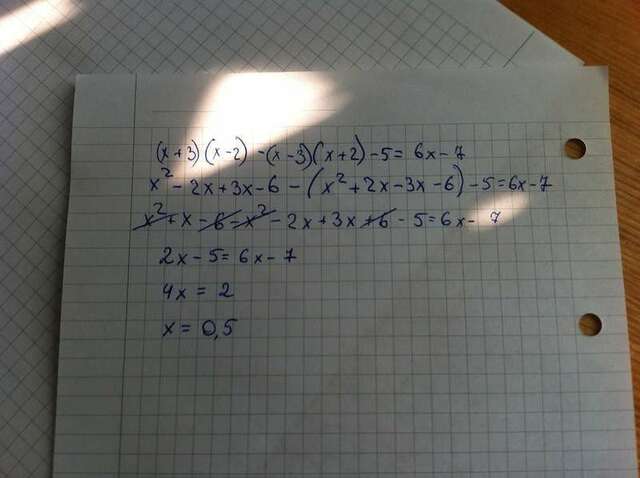 (x+3)(x-2)-(x-3)(x+2)-5=6x-7
x²-2x+3x-6-(x²+2x-3x-6)-5=6x-7
x²+x-6-x²-2x+3x+6-5=6x-7
2x-5=6x-7
4x=2
x=0,5